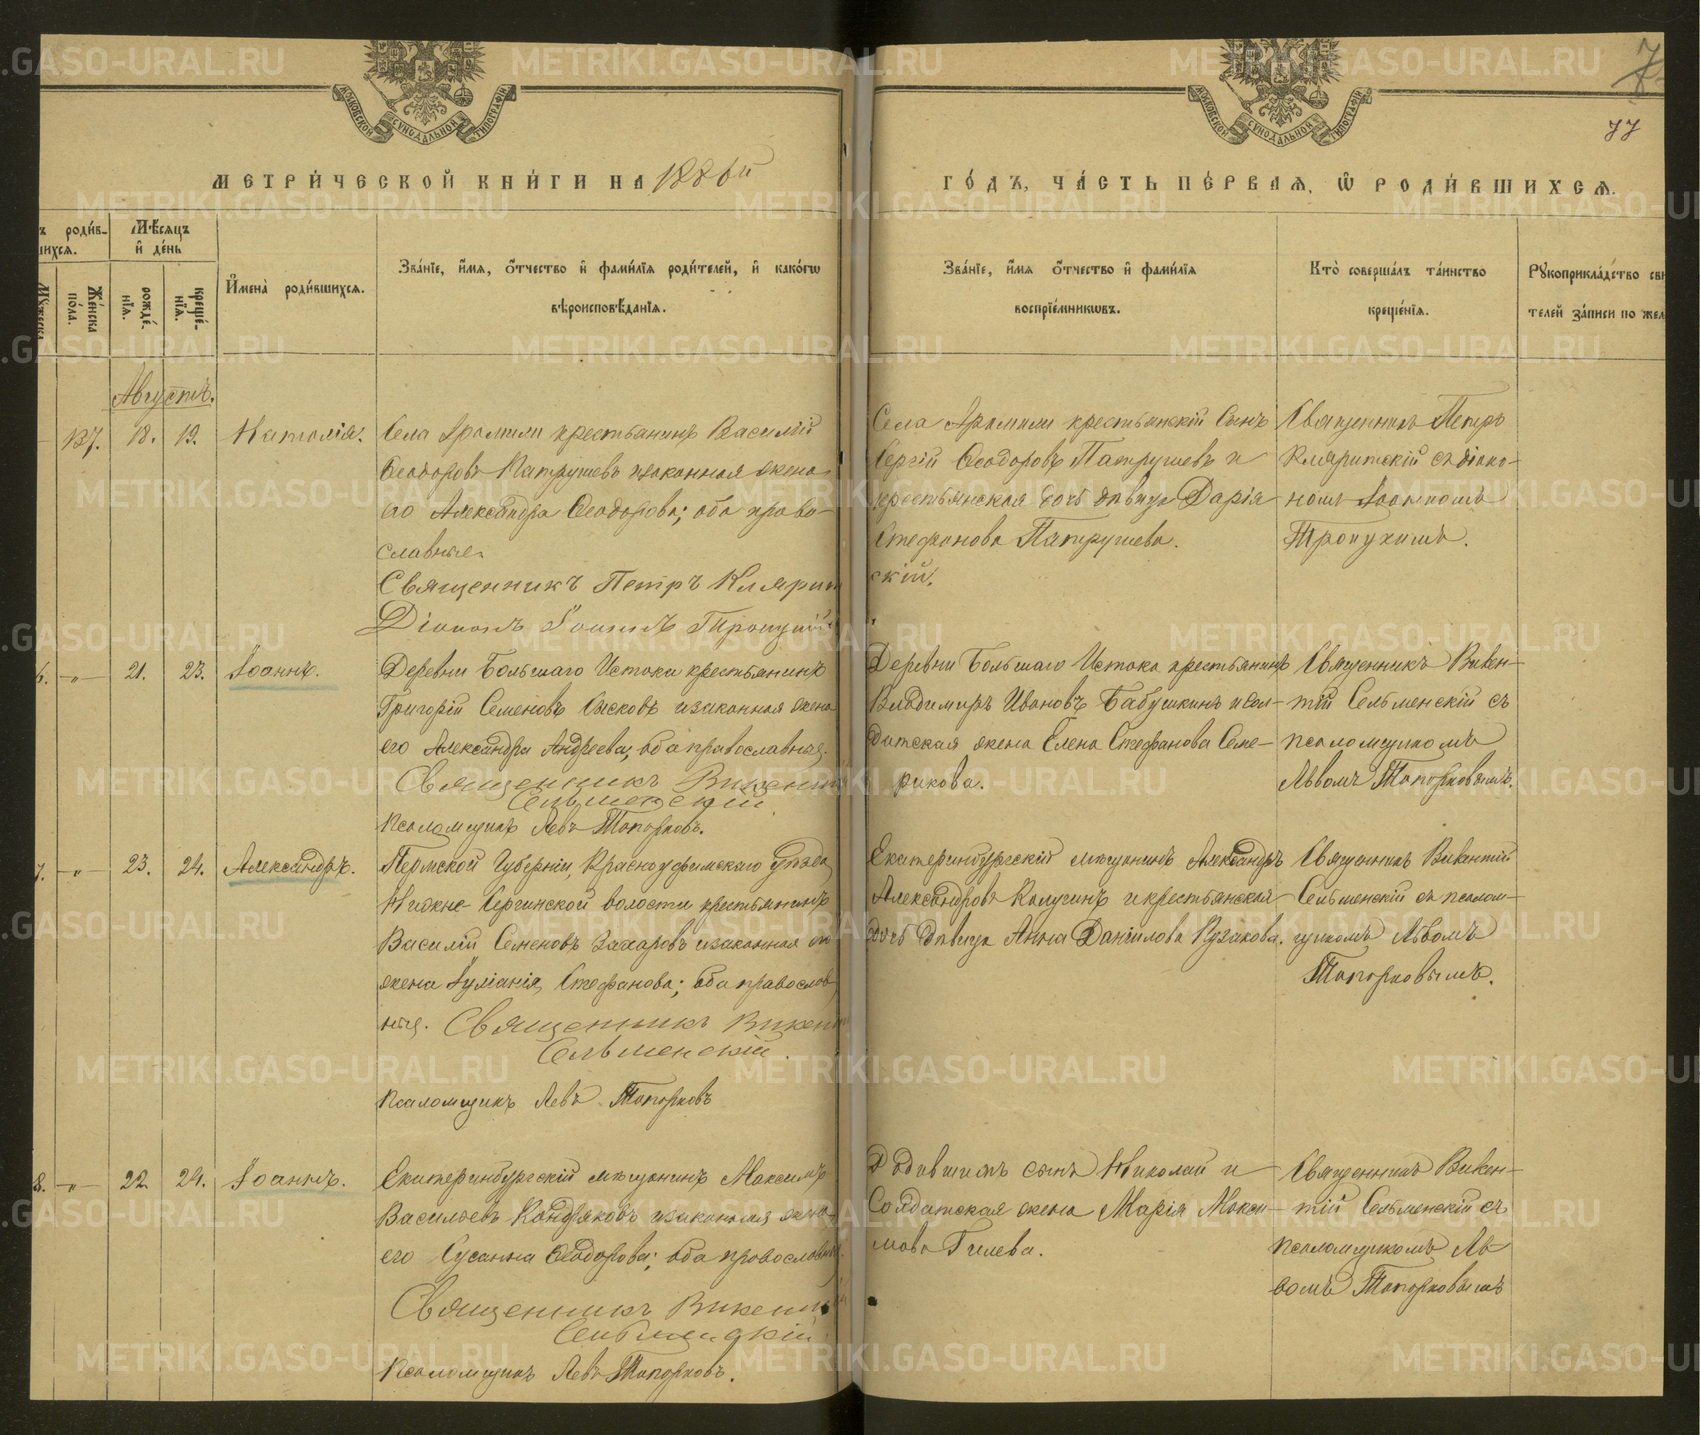 МОСКОВСКОЙ СУНОДАЛЬНОЙ ТИПОГРАФІИ
МОСКОВСКОЙ СУНОДАЛЬНОЙ ТИПОГРАФІИ
77
МЕТРИ́ЧЕСКОЙ КНИ́ГИ НА 1886й
ГО́ДЪ, ЧА́СТЬ ПЕ́РВАЯ, Ѡ РОДИ́ВШИХСЯ.
ъ роди́в-
шихся.
Мѣ́сяцъ
и҆ де́нь
Му́жеска
Же́нска по́ла.
рожде́нїѧ.
креще́нїѧ.
И҆мена̀ роди́вшихся.
Зва́нїе, и҆́мя, ѻ҆́тчество и҆ фами́лїя роди́телей, и҆ како́гѡ
вѣроисповѣ́данїя.
Зва́нїе, и҆́мя ѻ҆́тчество и҆ фами́лїя
воспрїе́мникѡвъ.
Кто̀ соверша́лъ та́инство
креще́нїя.
Рꙋкоприкла́дство сви
телей за́писи по жел
Августъ.
127. 18. 19. Наталія.
Села Арамили крестьянинъ Василій
Ѳеодоровъ Патрушевъ и законная жена
его Александра Ѳеодорова; оба право-
славные.
Священникъ Петръ Кляритскій.
Діаконъ Іоаннъ
Села Арамили крестьянскій сынъ
Сергій Ѳеодоровъ Патрушевъ и
крестьянская дочь дѣвица Дарія
Стефанова Патрушева.
Священникъ Петръ
Кляритскій съ діако-
номъ Іоанномъ
6. -„- 21. 23. Іоаннъ.
Деревни Большаго Истока крестьянинъ
Григорій Семеновъ Сысковъ и законная жена
его Александра Андреева, оба православные.
Священникъ Викентій
Сельменскій.
Псаломщикъ Левъ Топорковъ.
Деревни Большаго Истока крестьянинъ
Владимиръ Ивановъ Бабушкинъ и сол-
датская жена Елена Стефанова Семе-
рикова.
Священникъ Викен-
тій Сельменскій съ
псаломщикомъ
Львомъ Топорковымъ.
7. -„- 23. 24. Александръ.
Пермской Губерніи, Красноуфимскаго уѣзда,
Нижне-Сергинской волости крестьянинъ
Василій Семеновъ Захаровъ и законная его
жена Іуліанія Стефанова; оба православ
ные. Священникъ Викентій
Сельменскій.
Псаломщикъ Левъ Топорковъ
Екатеринбургскій мѣщанинъ Александръ
Александровъ Калугинъ и крестьянская
дочь дѣвица Анна Даніилова Кузакова.
Священникъ Викентій
Сельменскій съ псалом-
щикомъ Львомъ
Топорковымъ.
8. -„- 22. 24. Іоаннъ.
Екатеринбургскій мѣщанинъ Максимъ
Васильевъ Кондяковъ и законная жена
его Сусанна Ѳеодорова; оба православные.
Священникъ Викентій
Сельменскій
Псаломщикъ Левъ Топорковъ.
Родившихъ сынъ Николай и
Солдатская жена Марія Макси-
мова Гилева.
Священникъ Викен-
тій Сельменскій съ
псаломщикомъ Ль-
вомъ Топорковымъ
METRIKI.GASO-URAL.RU